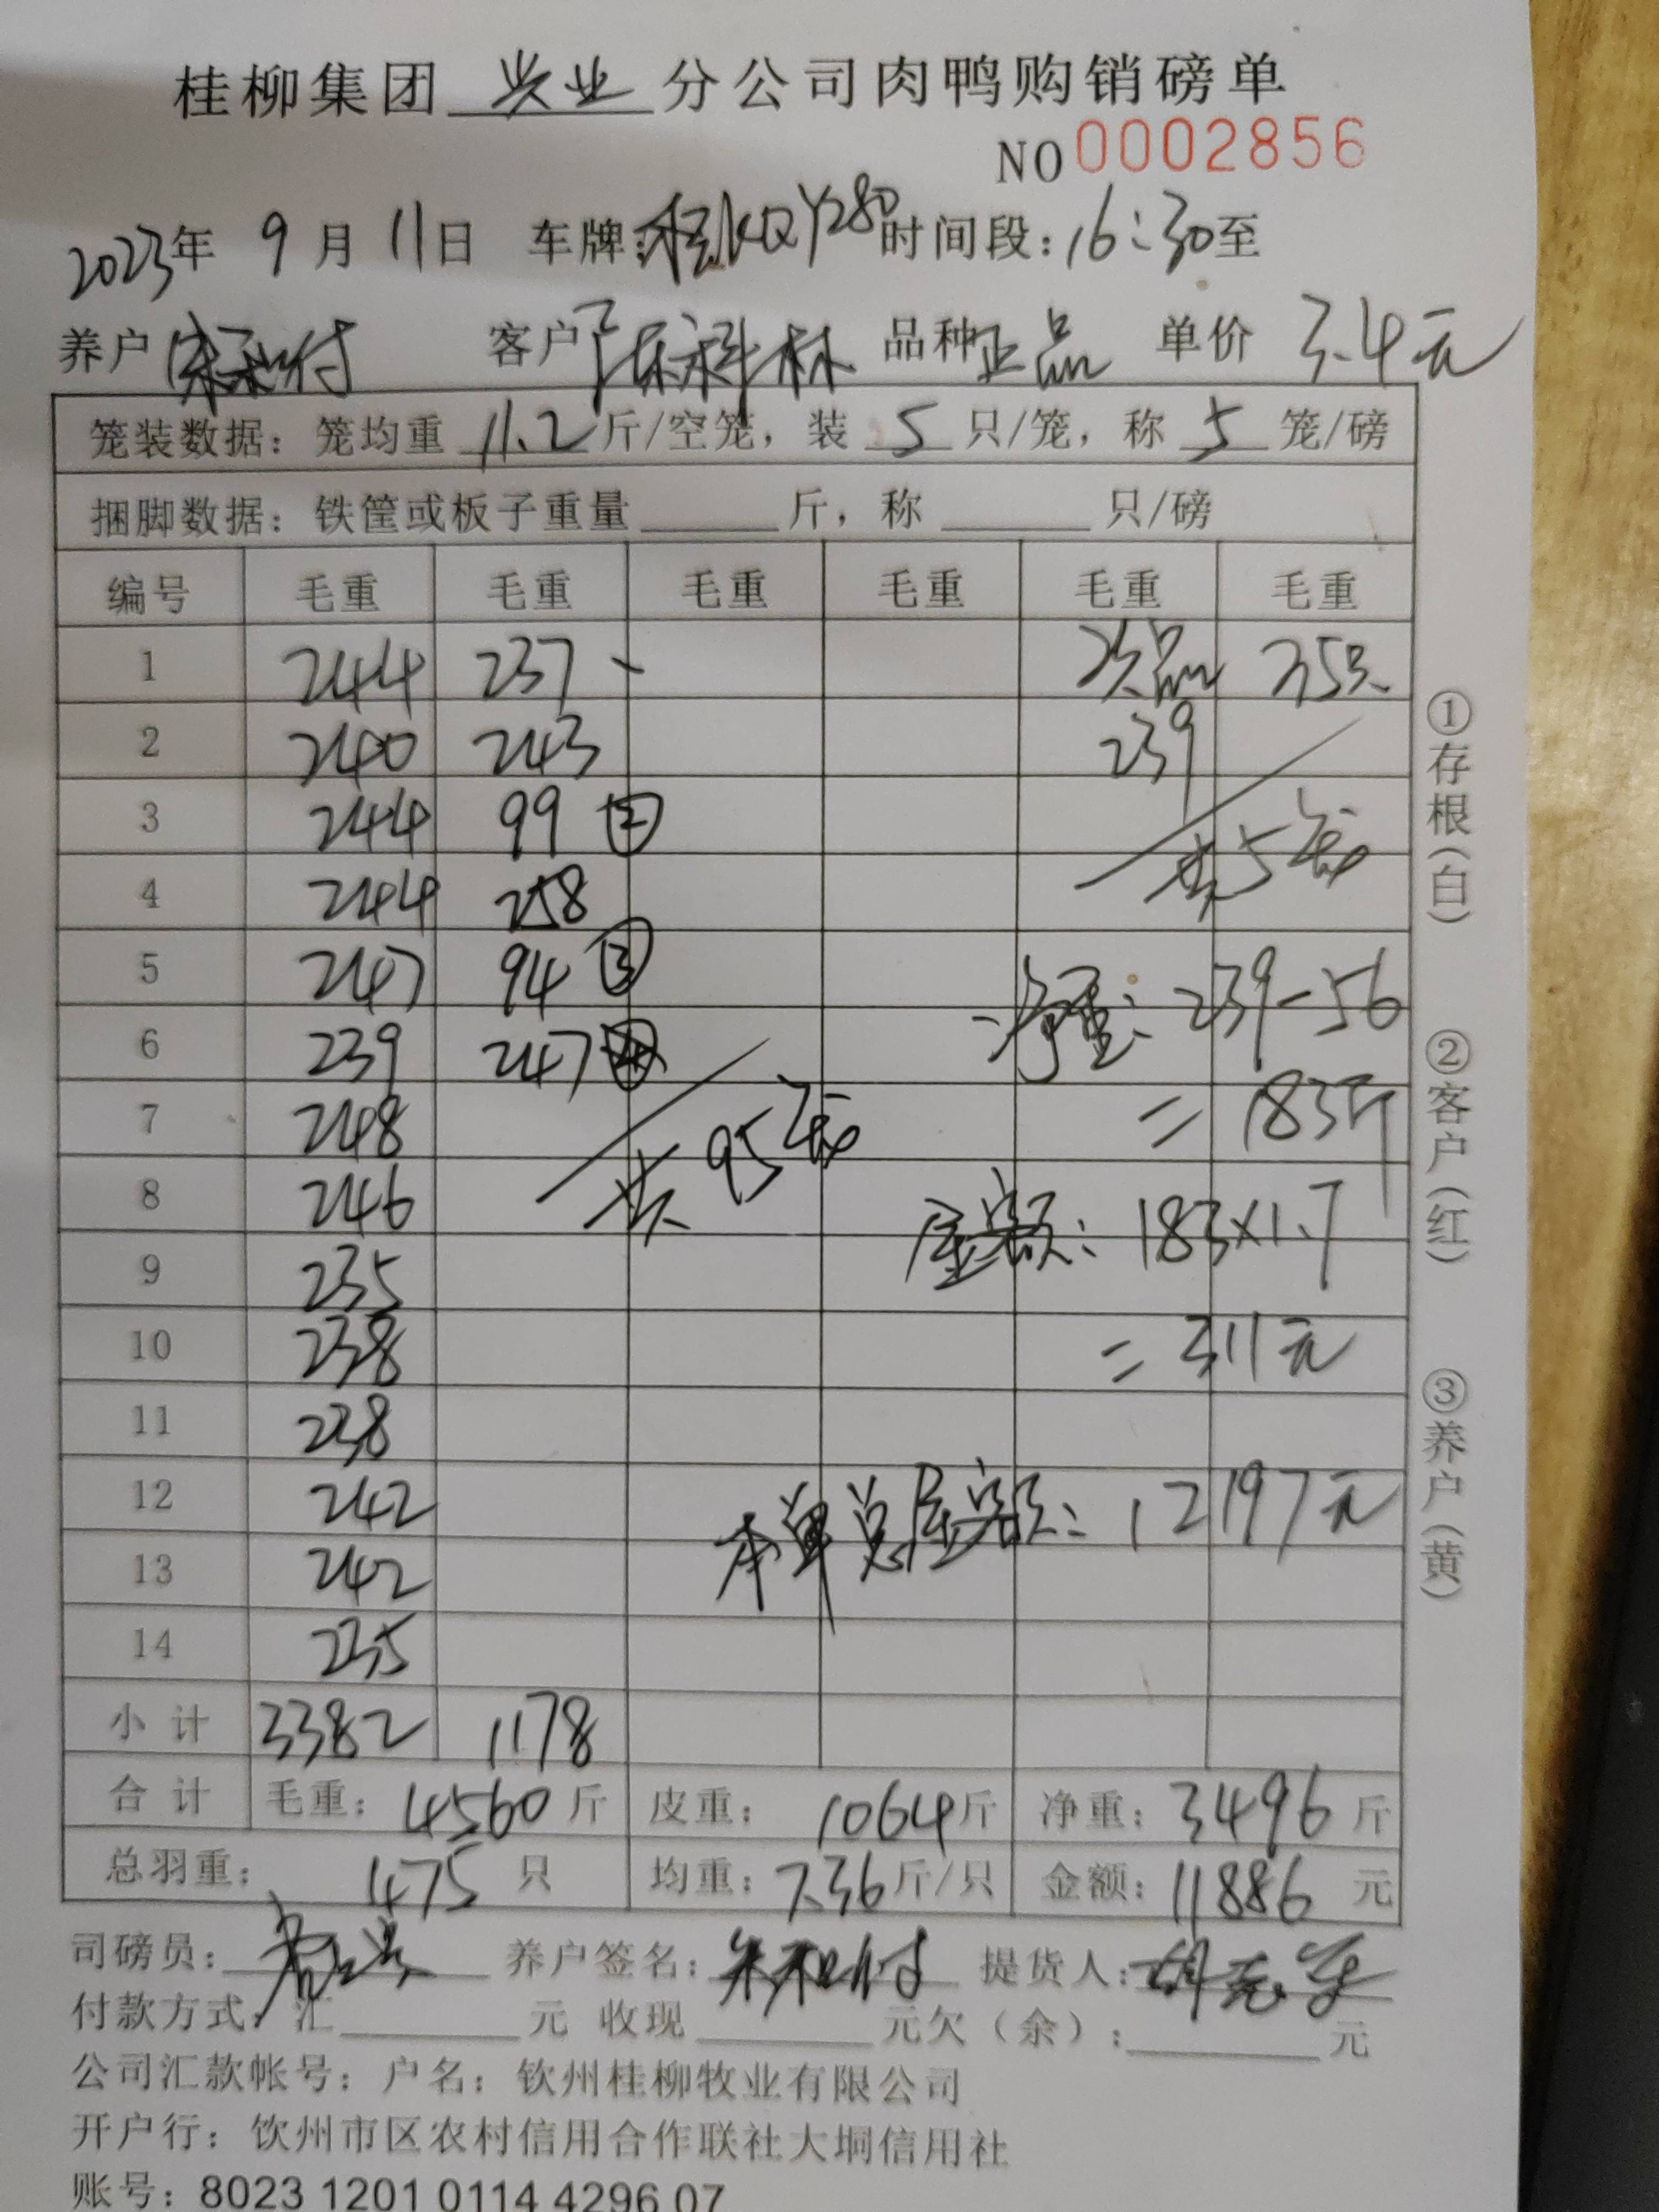 桂柳集团 兴业 分公司肉鸭购销磅单
NO 0002856
2023年 9月 11日 车牌:桂KQY280 时间段:16:30至
养户 客户 陈科林 品种 正品 单价 3.4元
笼装数据:笼均重 11.2 斤/空笼,装 5 只/笼,称 5 笼/磅
捆脚数据:铁筐或板子重量 斤,称 只/磅
编号 毛重 毛重 毛重 毛重 毛重 毛重
1 244 237 次品 25只
2 240 243 239
3 244 99 ② 共5笼
4 244 258
5 247 94 ③ 净重:239-56
6 239 247
7 248 共95笼 =183斤
8 246 金额:183×1.7
9 235
10 238 =311元
11 238
12 242 本单总金额:12197元
13 242
14 235
小计 3382 1178
合计 毛重:4560斤 皮重:1064斤 净重:3496斤
总羽重: 475 只 均重:7.36斤/只 金额:11886 元
司磅员: 养户签名: 提货人:
付款方式:汇 元 收现 元欠(余): 元
公司汇款帐号:户名:钦州桂柳牧业有限公司
开户行:钦州市区农村信用合作联社大垌信用社
账号:8023 1201 0114 4296 07
①存根(白)
②客户(红)
③养户(黄)